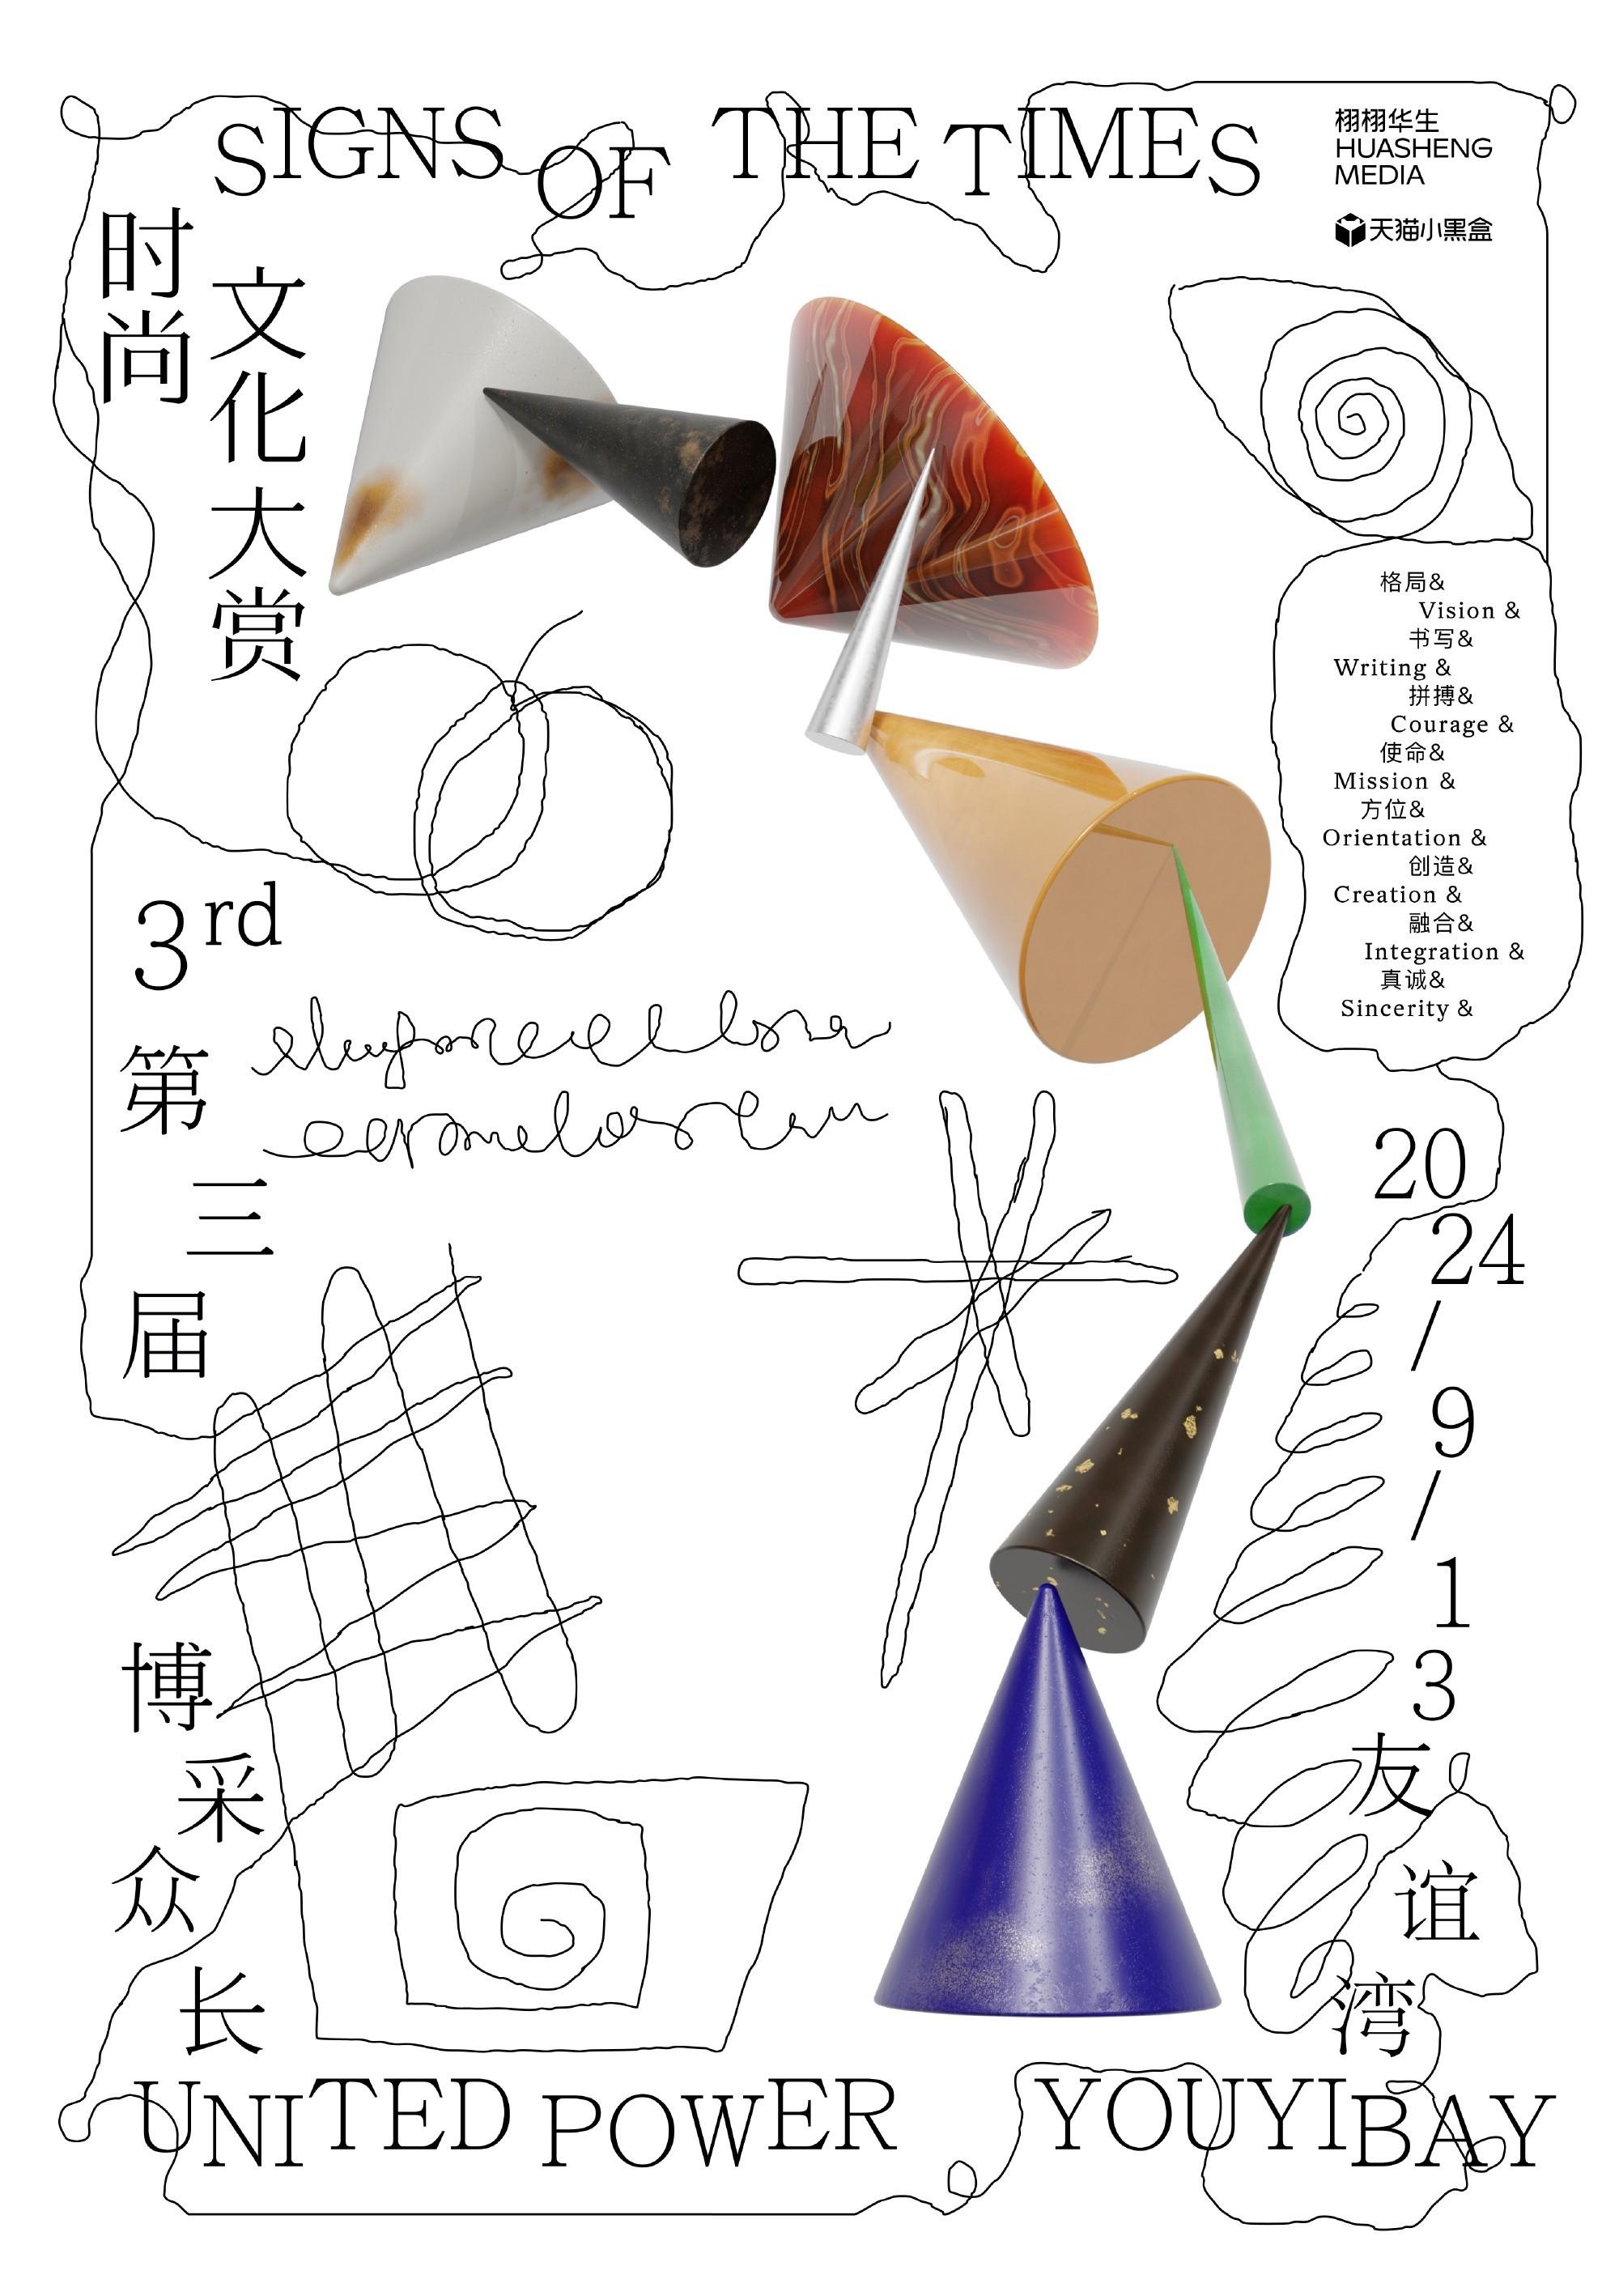 SIGNS OF THE TIMES
栩栩华生
HUASHENG
MEDIA
天猫小黑盒
时尚
文化大赏
格局&
Vision &
书写&
Writing &
拼搏&
Courage &
使命&
Mission &
方位&
Orientation &
创造&
Creation &
融合&
Integration &
真诚&
Sincerity &
3rd
第三届
2024/9/13
友谊湾
博采众长
UNITED POWER YOUYIBAY